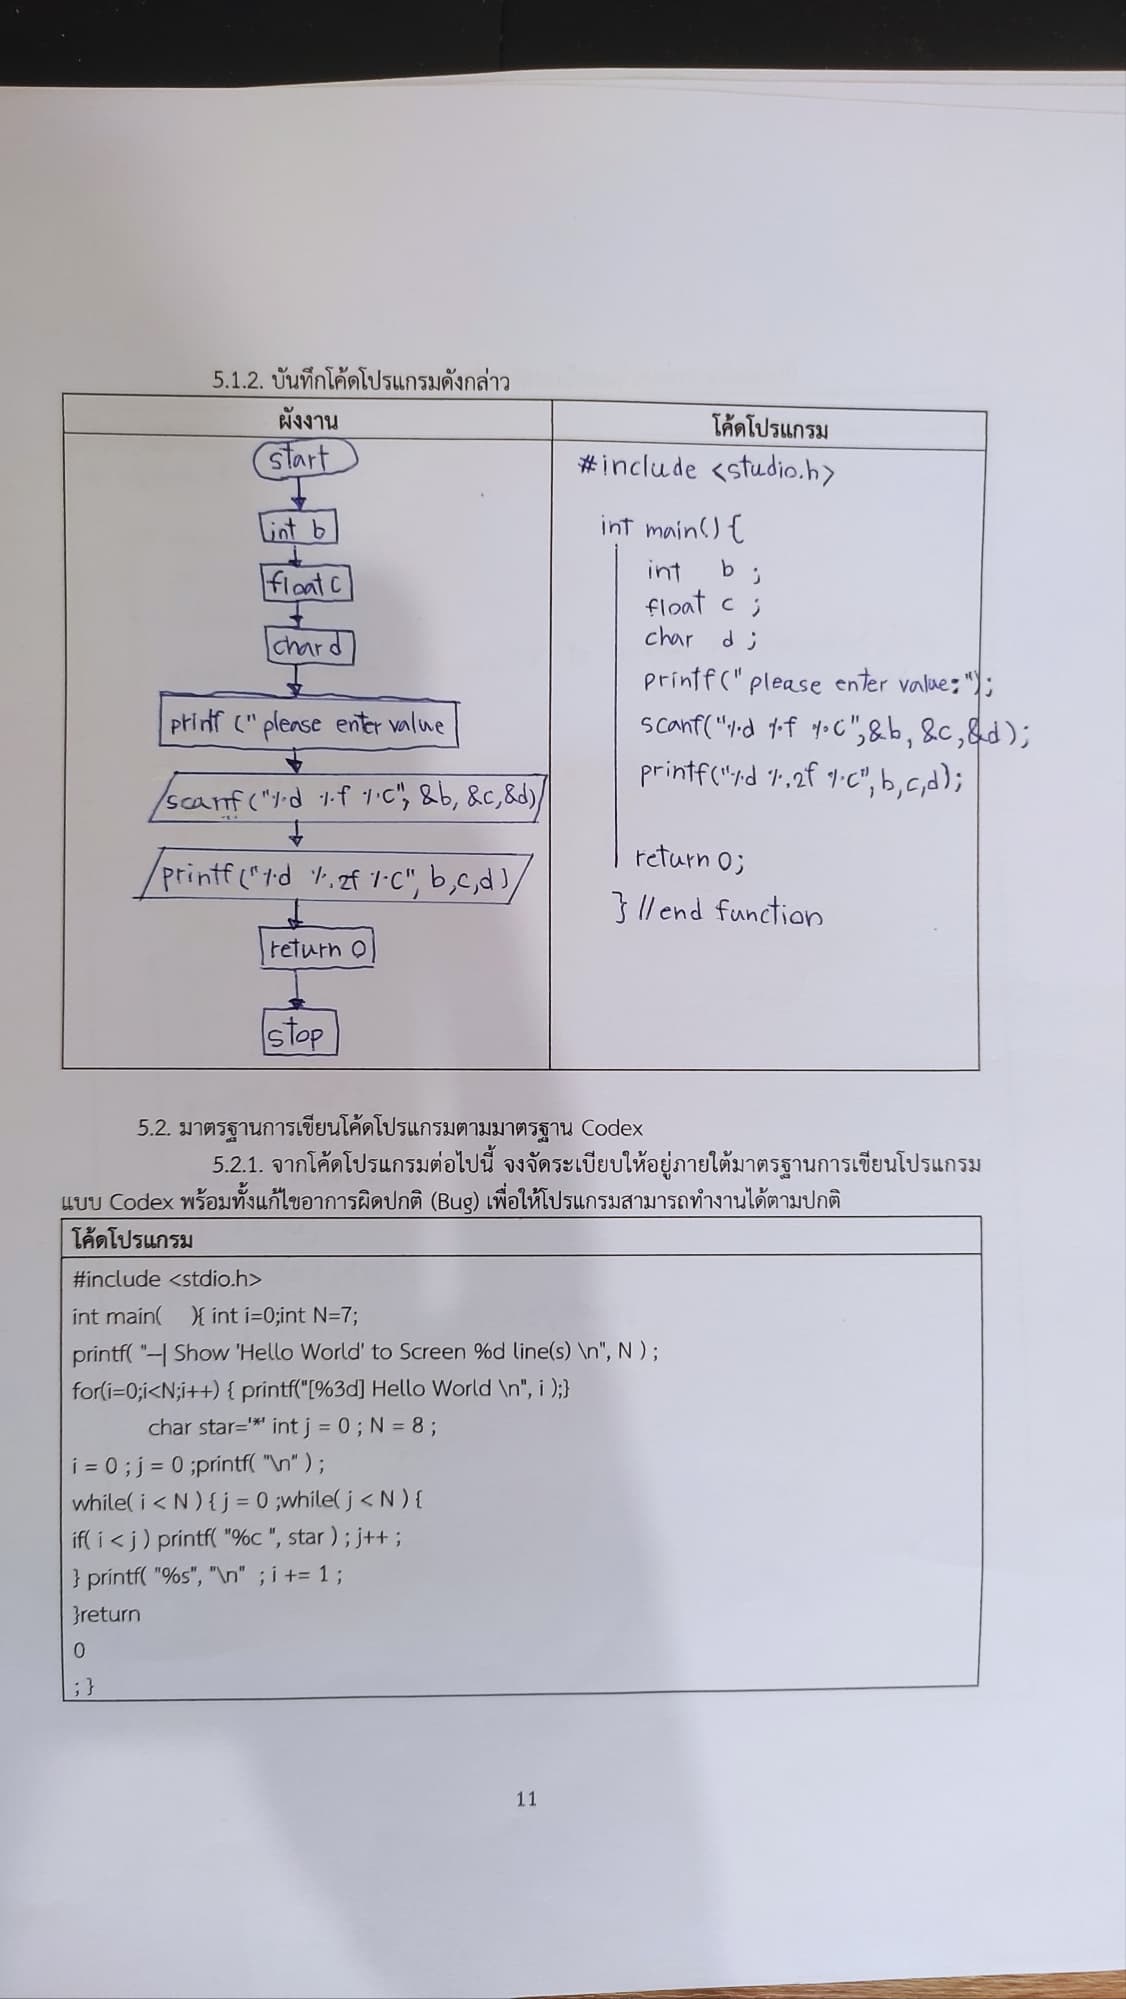 5.1.2. บันทึกโค้ดโปรแกรมดังกล่าว
ผังงาน
start
int b
float c
char d
printf (" please enter value
scanf ("%d %f %c", &b, &c, &d)
printf ("%d %.2f %c", b,c,d)
return 0
stop
โค้ดโปรแกรม
#include <studio.h>
int main() {
int b ;
float c ;
char d ;
printf(" please enter value: ");
scanf("%d %f %c", &b, &c, &d);
printf("%d %.2f %c", b,c,d);
return 0;
} //end function
5.2. มาตรฐานการเขียนโค้ดโปรแกรมตามมาตรฐาน Codex
5.2.1. จากโค้ดโปรแกรมต่อไปนี้ จงจัดระเบียบให้อยู่ภายใต้มาตรฐานการเขียนโปรแกรม
แบบ Codex พร้อมทั้งแก้ไขอาการผิดปกติ (Bug) เพื่อให้โปรแกรมสามารถทำงานได้ตามปกติ
โค้ดโปรแกรม
#include <stdio.h>
int main( ){ int i=0;int N=7;
printf( "--| Show 'Hello World' to Screen %d line(s) \n", N ) ;
for(i=0;i<N;i++) { printf("[%3d] Hello World \n", i );}
char star='*' int j = 0 ; N = 8 ;
i = 0 ; j = 0 ;printf( "\n" ) ;
while( i < N ) { j = 0 ;while( j < N ) {
if( i < j ) printf( "%c ", star ) ; j++ ;
} printf( "%s", "\n" ; i += 1 ;
}return
0
; }
11